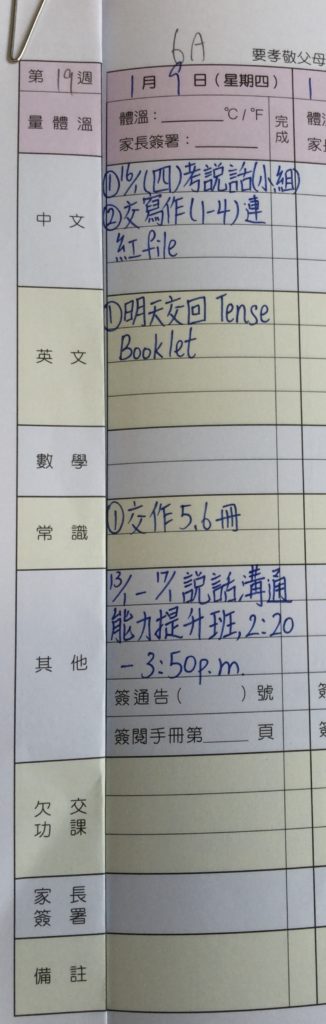 6A
要孝敬父母
第19週
1月9日(星期四)
量體溫
體溫：______°C/°F
家長簽署：______
完成
中文
①16/1(四)考説話(小組)
②交寫作(1-4)連
紅file
英文
①明天交回 Tense
Booklet
數學
常識
①交作5,6冊
其他
13/1-17/1 説話溝通
能力提升班, 2:20
-3:50p.m.
簽通告(      )號
簽閱手冊第____頁
欠交
功課
家長
簽署
備註